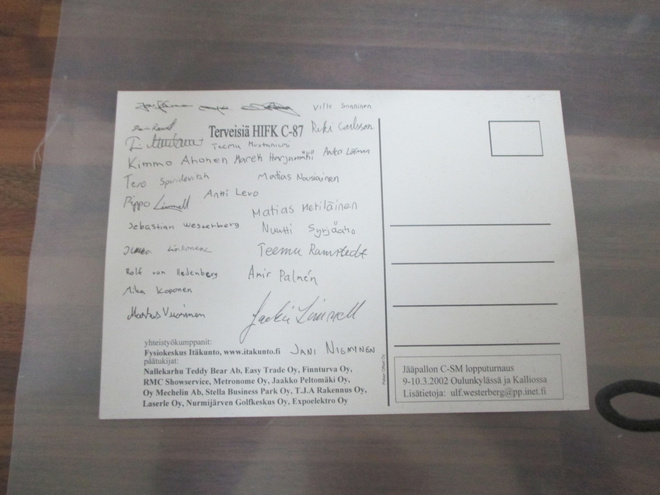 Ville Sunninen
Terveisiä HIFK C-87 Riki Carlsson
Teemu Mustaniemi
Kimmo Ahonen Marek Harjumäki
Tero Matias Nousiainen
Pippo Linnell Antti Levo
Matias Metiläinen
Sebastian Westerberg Nuutti Syrjäatio
Teemu Ramstedt
Rolf von Rettenberg Amir Palmén
Mika Koponen
Markus Vuorinen Jackie Linnell
yhteistyökumppanit:
Fysiokeskus Itäkunto, www.itakunto.fi JANI NIEMINEN
päätukijat:
Nallekarhu Teddy Bear Ab, Easy Trade Oy, Finnturva Oy,
RMC Showservice, Metronome Oy, Jaakko Peltomäki Oy,
Oy Mechelin Ab, Stella Business Park Oy, T.J.A Rakennus Oy,
Laserle Oy, Nurmijärven Golfkeskus Oy, Expoelektro Oy
Jääpallon C-SM lopputurnaus
9-10.3.2002 Oulunkylässä ja Kalliossa
Lisätietoja: ulf.westerberg@pp.inet.fi